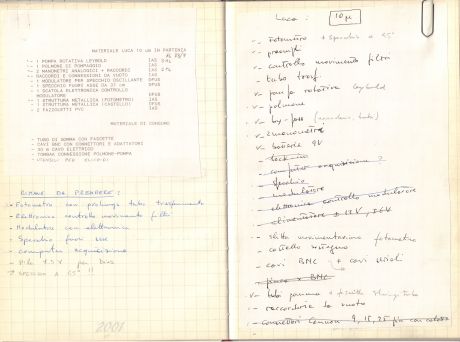 MATERIALE LUCA 10 um IN PARTENZA
1 POMPA ROTATIVA LEYBOLD IAS
1 POLMONE DI POMPAGGIO IAS
2 MANOMETRI ANALOGICI + RACCORDI IAS
RACCORDI E CONNESSIONI DA VUOTO IAS
1 MODULATORE PER SPECCHIO OSCILLANTE DFUS
1 SPECCHIO FUORI ASSE DA 37 cm DFUS
1 SCATOLA ELETTRONICA CONTROLLO
MODULATORE DFUS
1 STRUTTURA METALLICA (FOTOMETRO) IAS
1 STRUTTURA METALLICA (CASTELLO) DFUS
2 FAZZOLETTI PVC IAS
MATERIALE DI CONSUMO
TUBO DI GOMMA CON FASCETTE
CAVI BNC CON CONNETTORI E ADATTATORI
CAVO ELETTRICO
TOMBAK CONNESSIONE POLMONE-POMPA
RIMANE DA PRENDERE:
- Fotometro con prolunga tubo
- Elettronica controllo movimento filtri
- Modulatore con elettronica
- Specchio fuori asse
- computer acquisizione
- Pile 1.5 V per
- SPECCHIO A 45° !!
2001
Luca: 10 μ
- Fotometro + specchio a 45°
- preampli
- controllo movimento filtri
- tubo
- pompa rotativa Leybold
- polmone
- by-pass
- 2 manometri
- batterie 9V
- lock-in
- computer acquisizione
- specchio
- modulatore
- elettronica controllo modulatore
- alimentatore ± 15V,
- slitta movimentazione fotometro
- castello sostegno
- cavi BNC + cavi
- BNC
- tubi gomma +
- raccorderia da vuoto
- connettori Cannon 9, 15, 25 pin con